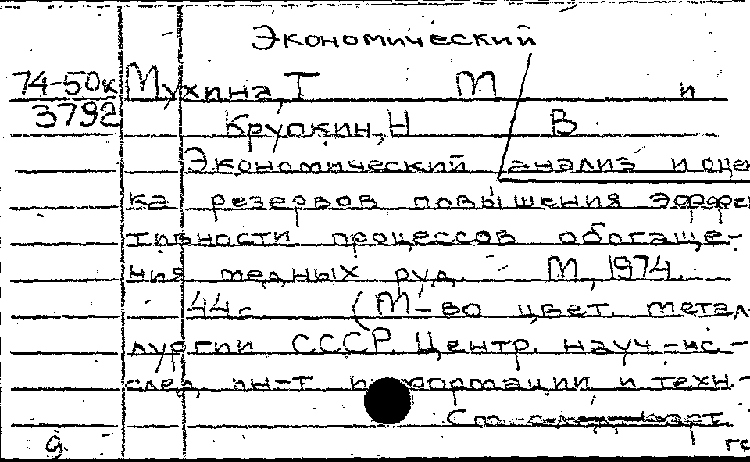 Экономический
74-50к Мухина, Т М и
3792 Крупкин, Н В
Экономический анализ и оцен
ка резервов повышения эффек
тивности процессов обогаще-
ния медных руд. - М, 1974.
44с (М-во цвет. метал
лургии СССР. Центр. науч.-ис-
след. ин-т информации и техн-
См след. карт.
9